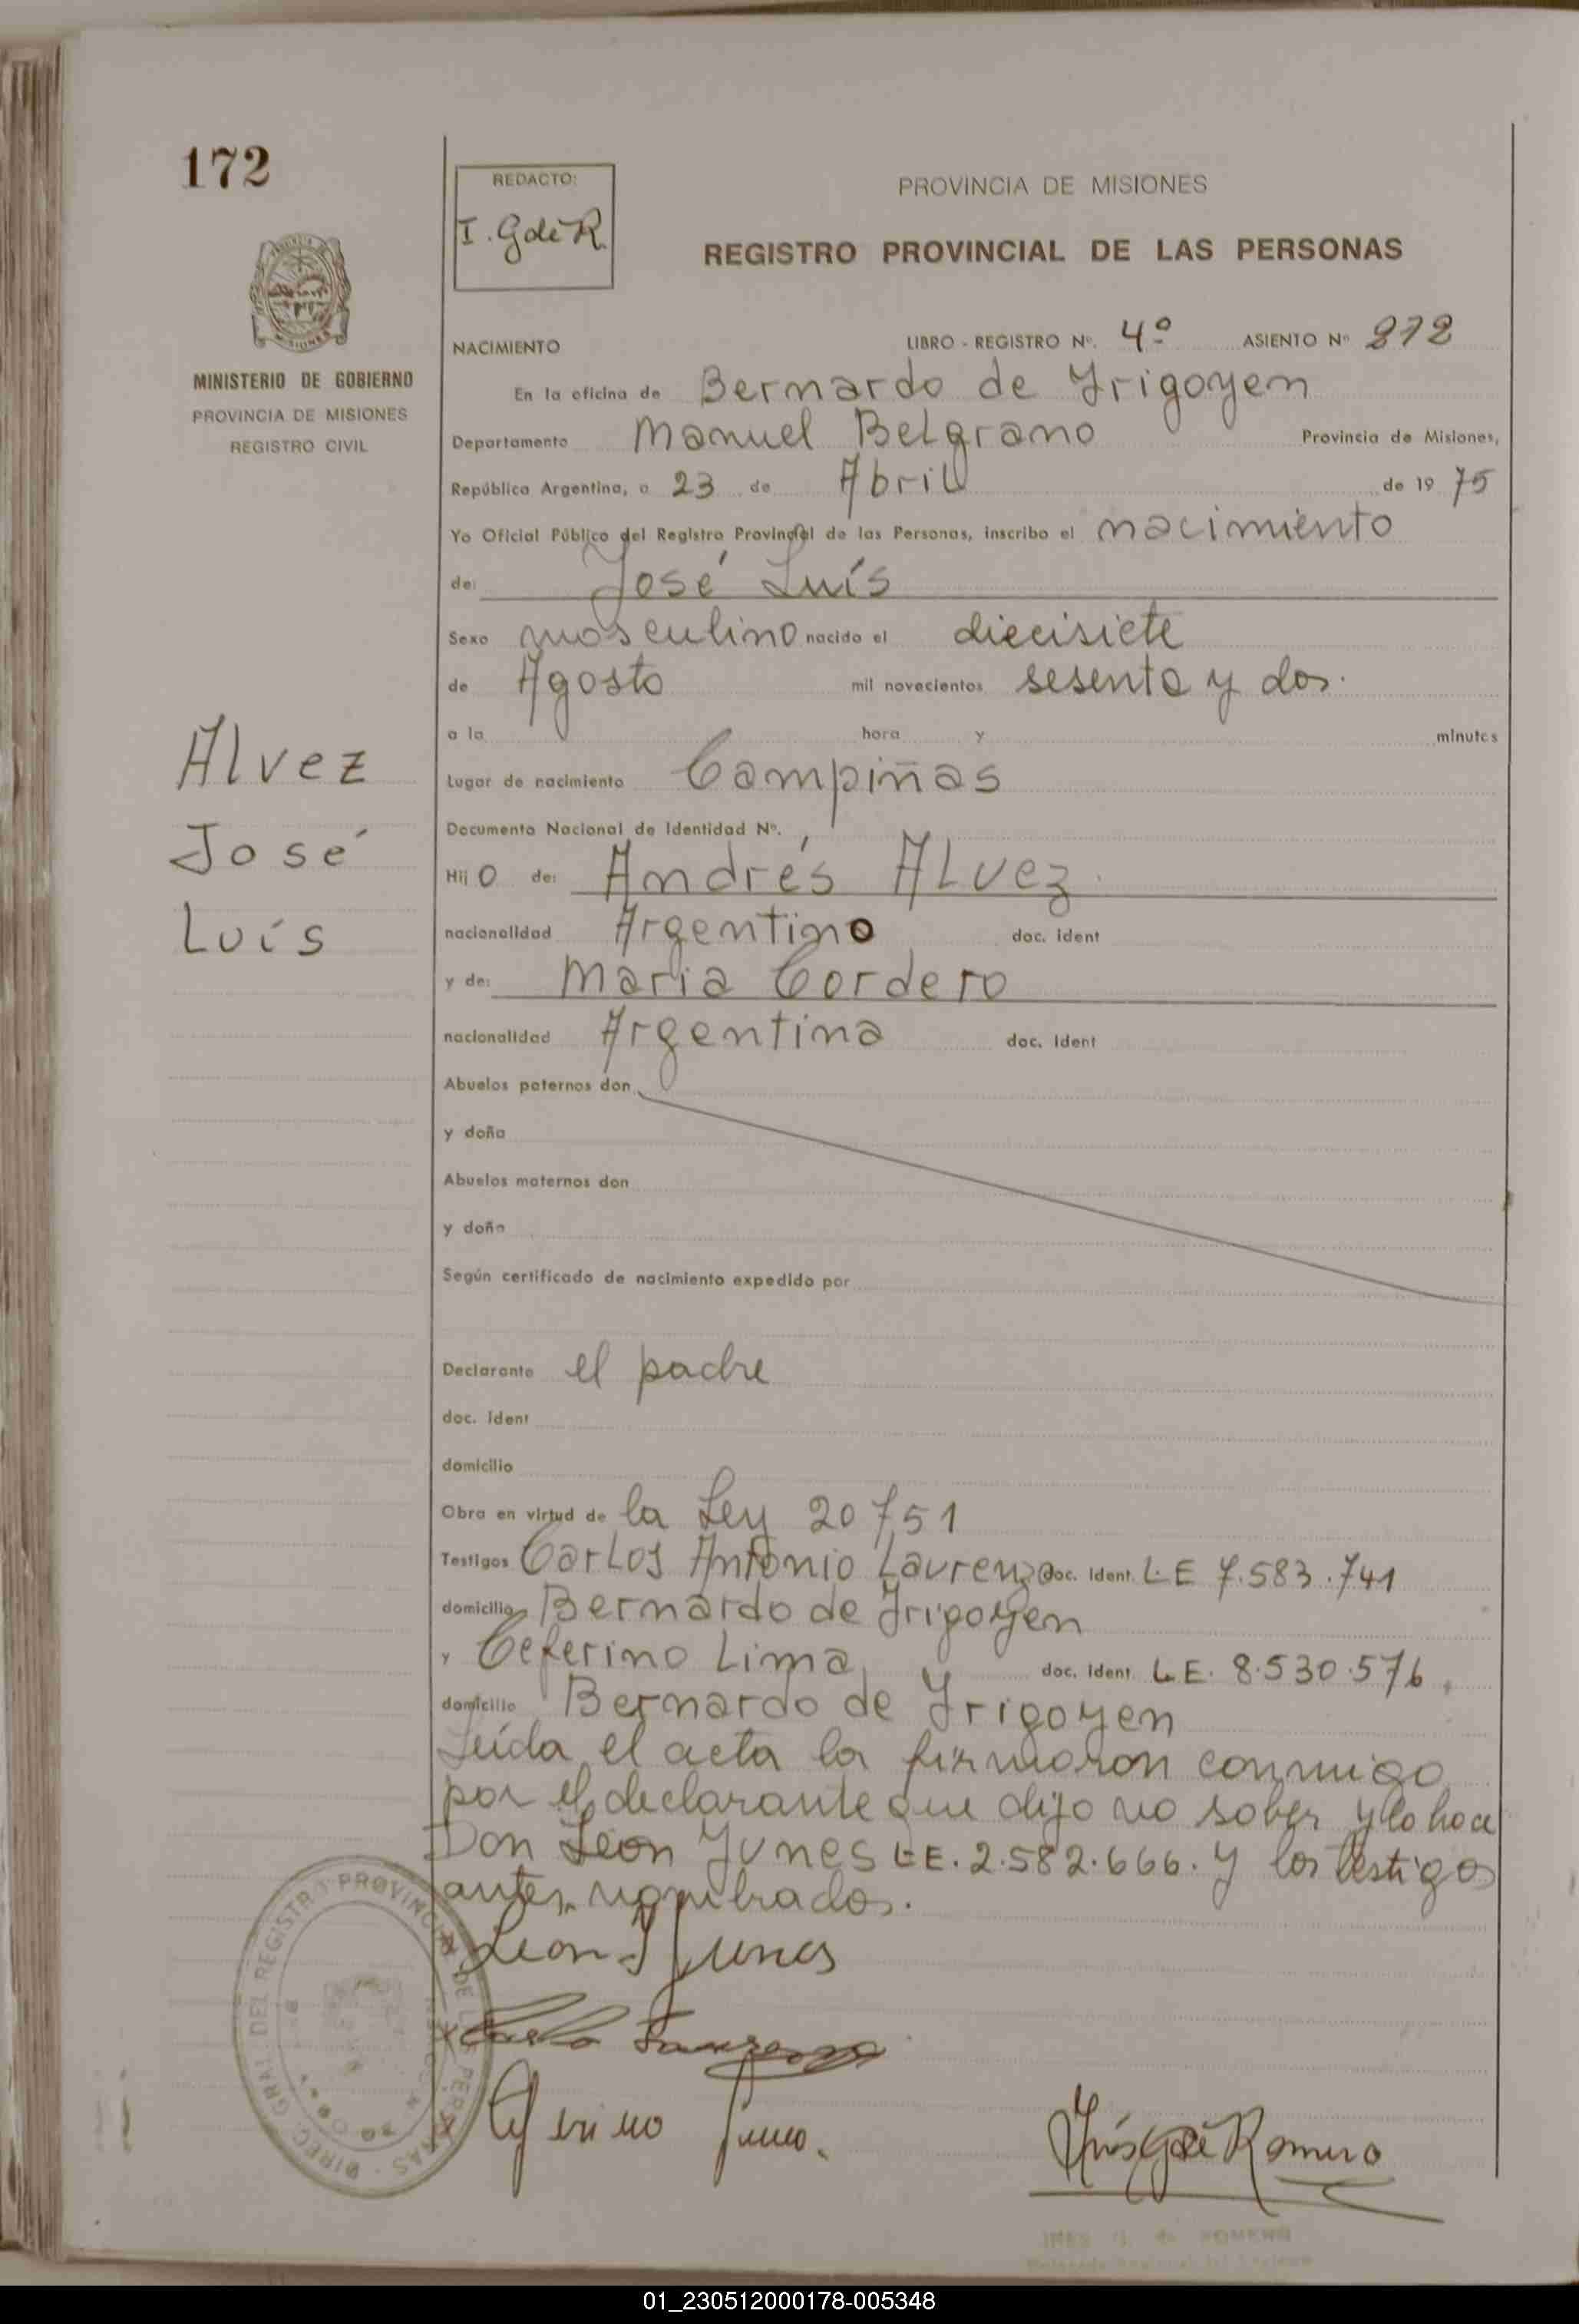 172
REDACTO:
I. G de R.
PROVINCIA DE MISIONES
REGISTRO PROVINCIAL DE LAS PERSONAS
MINISTERIO DE GOBIERNO
PROVINCIA DE MISIONES
REGISTRO CIVIL
NACIMIENTO LIBRO - REGISTRO Nº. 4º ASIENTO Nº 272
En la oficina de Bernardo de Yrigoyen
Departamento Manuel Belgrano Provincia de Misiones,
República Argentina, a 23 de Abril de 1975
Yo Oficial Público del Registro Provincial de las Personas, inscribo el nacimiento
de: José Luís
Sexo masculino nacido el diecisiete
de Agosto mil novecientos sesenta y dos.
a la hora y minutos
Alvez
José
Luís
Lugar de nacimiento Campiñas
Documento Nacional de Identidad Nº.
Hijo de: Andrés Alvez.
nacionalidad Argentino doc. ident
y de: Maria Cordero
nacionalidad Argentina doc. ident
Abuelos paternos don
y doña
Abuelos maternos don
y doña
Según certificado de nacimiento expedido por
Declarante el padre
doc. ident
domicilio
Obra en virtud de la Ley 20751
Testigos Carlos Antonio Laurenzo doc. ident. L.E 7.583.741
domicilio Bernardo de Yrigoyen
y Ceferino Lima, doc. ident. L.E. 8.530.576,
domicilio Bernardo de Yrigoyen
Leída el acta la firmaron conmigo
por el declarante que dijo no saber y lo hace
Don Leon Yunes L.E. 2.582.666. y los testigos
antes nombrados.
Leon Yunes
Ceferino Lima.
Inés G de Romero
DIREC. GRAL. DEL REGISTRO PROVINCIAL DE LAS PERSONAS
INES G. de ROMERO
01_230512000178-005348